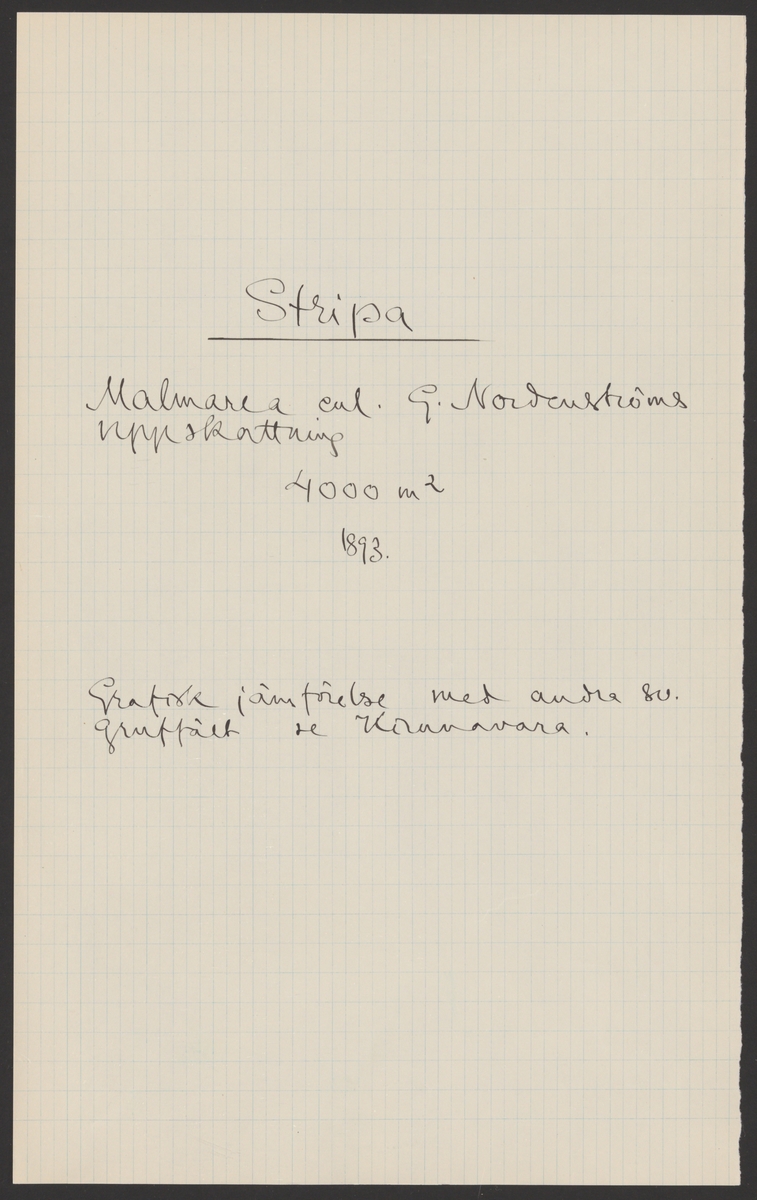 Stripa
Malmarea enl. G. Nordenströms
uppskattning
4000 m²
1893.
Grafisk jämförelse med andra sv.
gruffält se Kirunavara.